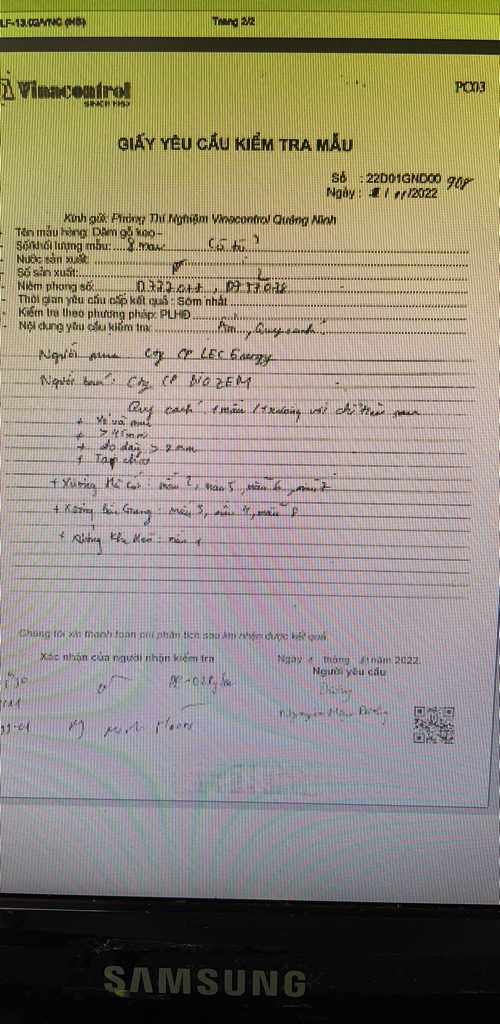 LF-13.02/VNC (HB) Trang 2/2
Vinacontrol PC03
SINCE 1957
GIẤY YÊU CẦU KIỂM TRA MẪU
Số : 22D01GND00 908
Ngày : /11/2022
Kính gửi: Phòng Thí Nghiệm Vinacontrol Quảng Ninh
- Tên mẫu hàng: Dăm gỗ keo -
- Số/khối lượng mẫu: 8 mẫu
- Nước sản xuất:
- Số sản xuất:
- Niêm phong số:
- Thời gian yêu cầu cấp kết quả : Sớm nhất
- Kiểm tra theo phương pháp: PLHĐ
- Nội dung yêu cầu kiểm tra: Ẩm, Quy cách
Người mua Cty CP LEC Energy
Người bán: Cty CP BIOZEM
Quy cách 1 mẫu / 1 xưởng với chỉ tiêu sau
+ Vỏ và mục
+ > 45mm
+ độ dày > 8mm
+ Tạp chất
+ Xưởng : mẫu 2, mẫu 5, mẫu 6, mẫu 7
+ Xưởng Giang: mẫu 3, mẫu 4, mẫu 8
+ Xưởng : mẫu 1
Chúng tôi xin thanh toán phí phân tích sau khi nhận được kết quả
Xác nhận của người nhận kiểm tra Ngày 1 tháng 11 năm 2022.
Người yêu cầu
SAMSUNG